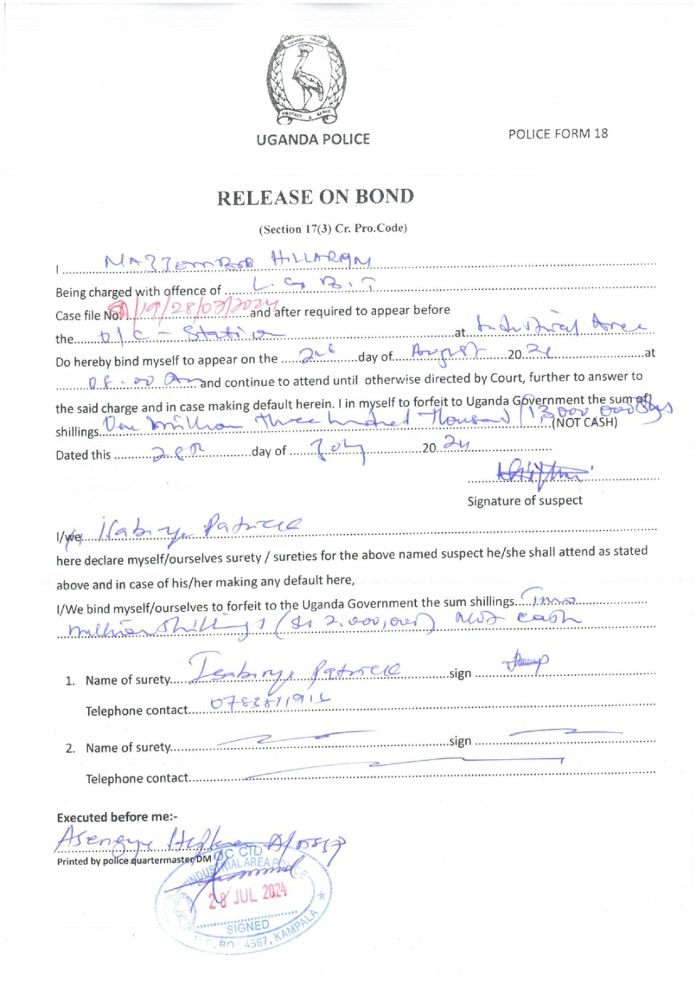 UGANDA POLICE
PROTECT & SERVE
UGANDA POLICE
POLICE FORM 18
RELEASE ON BOND
(Section 17(3) Cr. Pro.Code)
I HILLARY
Being charged with offence of L.G.B.T
Case file No. /19/28/07/2024 and after required to appear before
the O/C - Station at Industrial Area
Do hereby bind myself to appear on the 2nd day of August 2024 at
08.00 Am and continue to attend until otherwise directed by Court, further to answer to
the said charge and in case making default herein. I in myself to forfeit to Uganda Government the sum of
shillings One million three hundred thousand (NOT CASH)
Dated this 28th day of July 2024
Signature of suspect
I/we Patricia
here declare myself/ourselves surety / sureties for the above named suspect he/she shall attend as stated
above and in case of his/her making any default here,
I/We bind myself/ourselves to forfeit to the Uganda Government the sum shillings Two
million shillings (shs 2,000,000) Not cash
1. Name of surety Patricia sign
Telephone contact
2. Name of surety sign
Telephone contact
Executed before me:-
Printed by police quartermaster DM
O/C CTD
INDUSTRIAL AREA POLICE
28 JUL 2024
SIGNED
KAMPALA